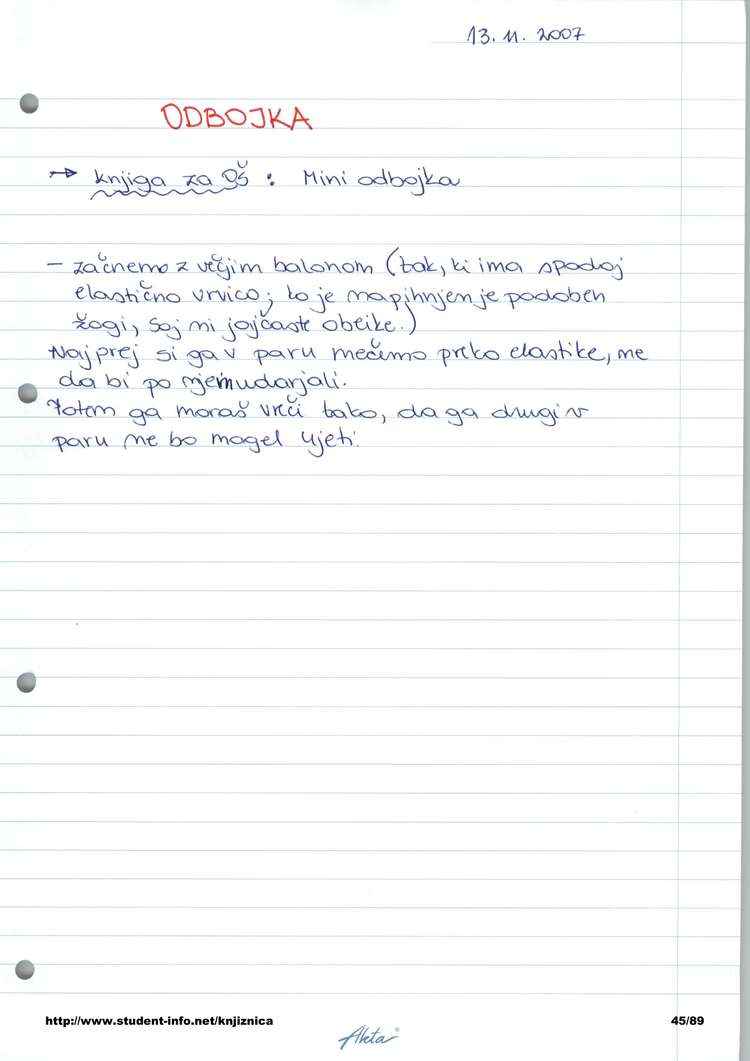 13. 11. 2007
ODBOJKA
→ knjiga za OŠ : Mini odbojka
- začnemo z večjim balonom (tak, ki ima spodaj
elastično vrvico; ko je napihnjen je podoben
žogi, saj ni jajčaste oblike.)
Najprej si ga v paru mečemo preko elastike, ne
da bi po njemu udarjali.
Potem ga moraš vreči tako, da ga drugi v
paru ne bo mogel ujeti.
http://www.student-info.net/knjiznica
45/89
Akta